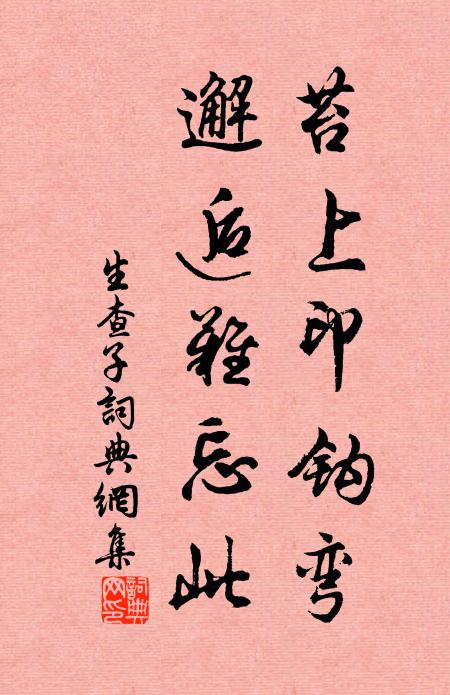 苔上印钩弯
邂逅難忘此
生查子詞典網集
詞典網印